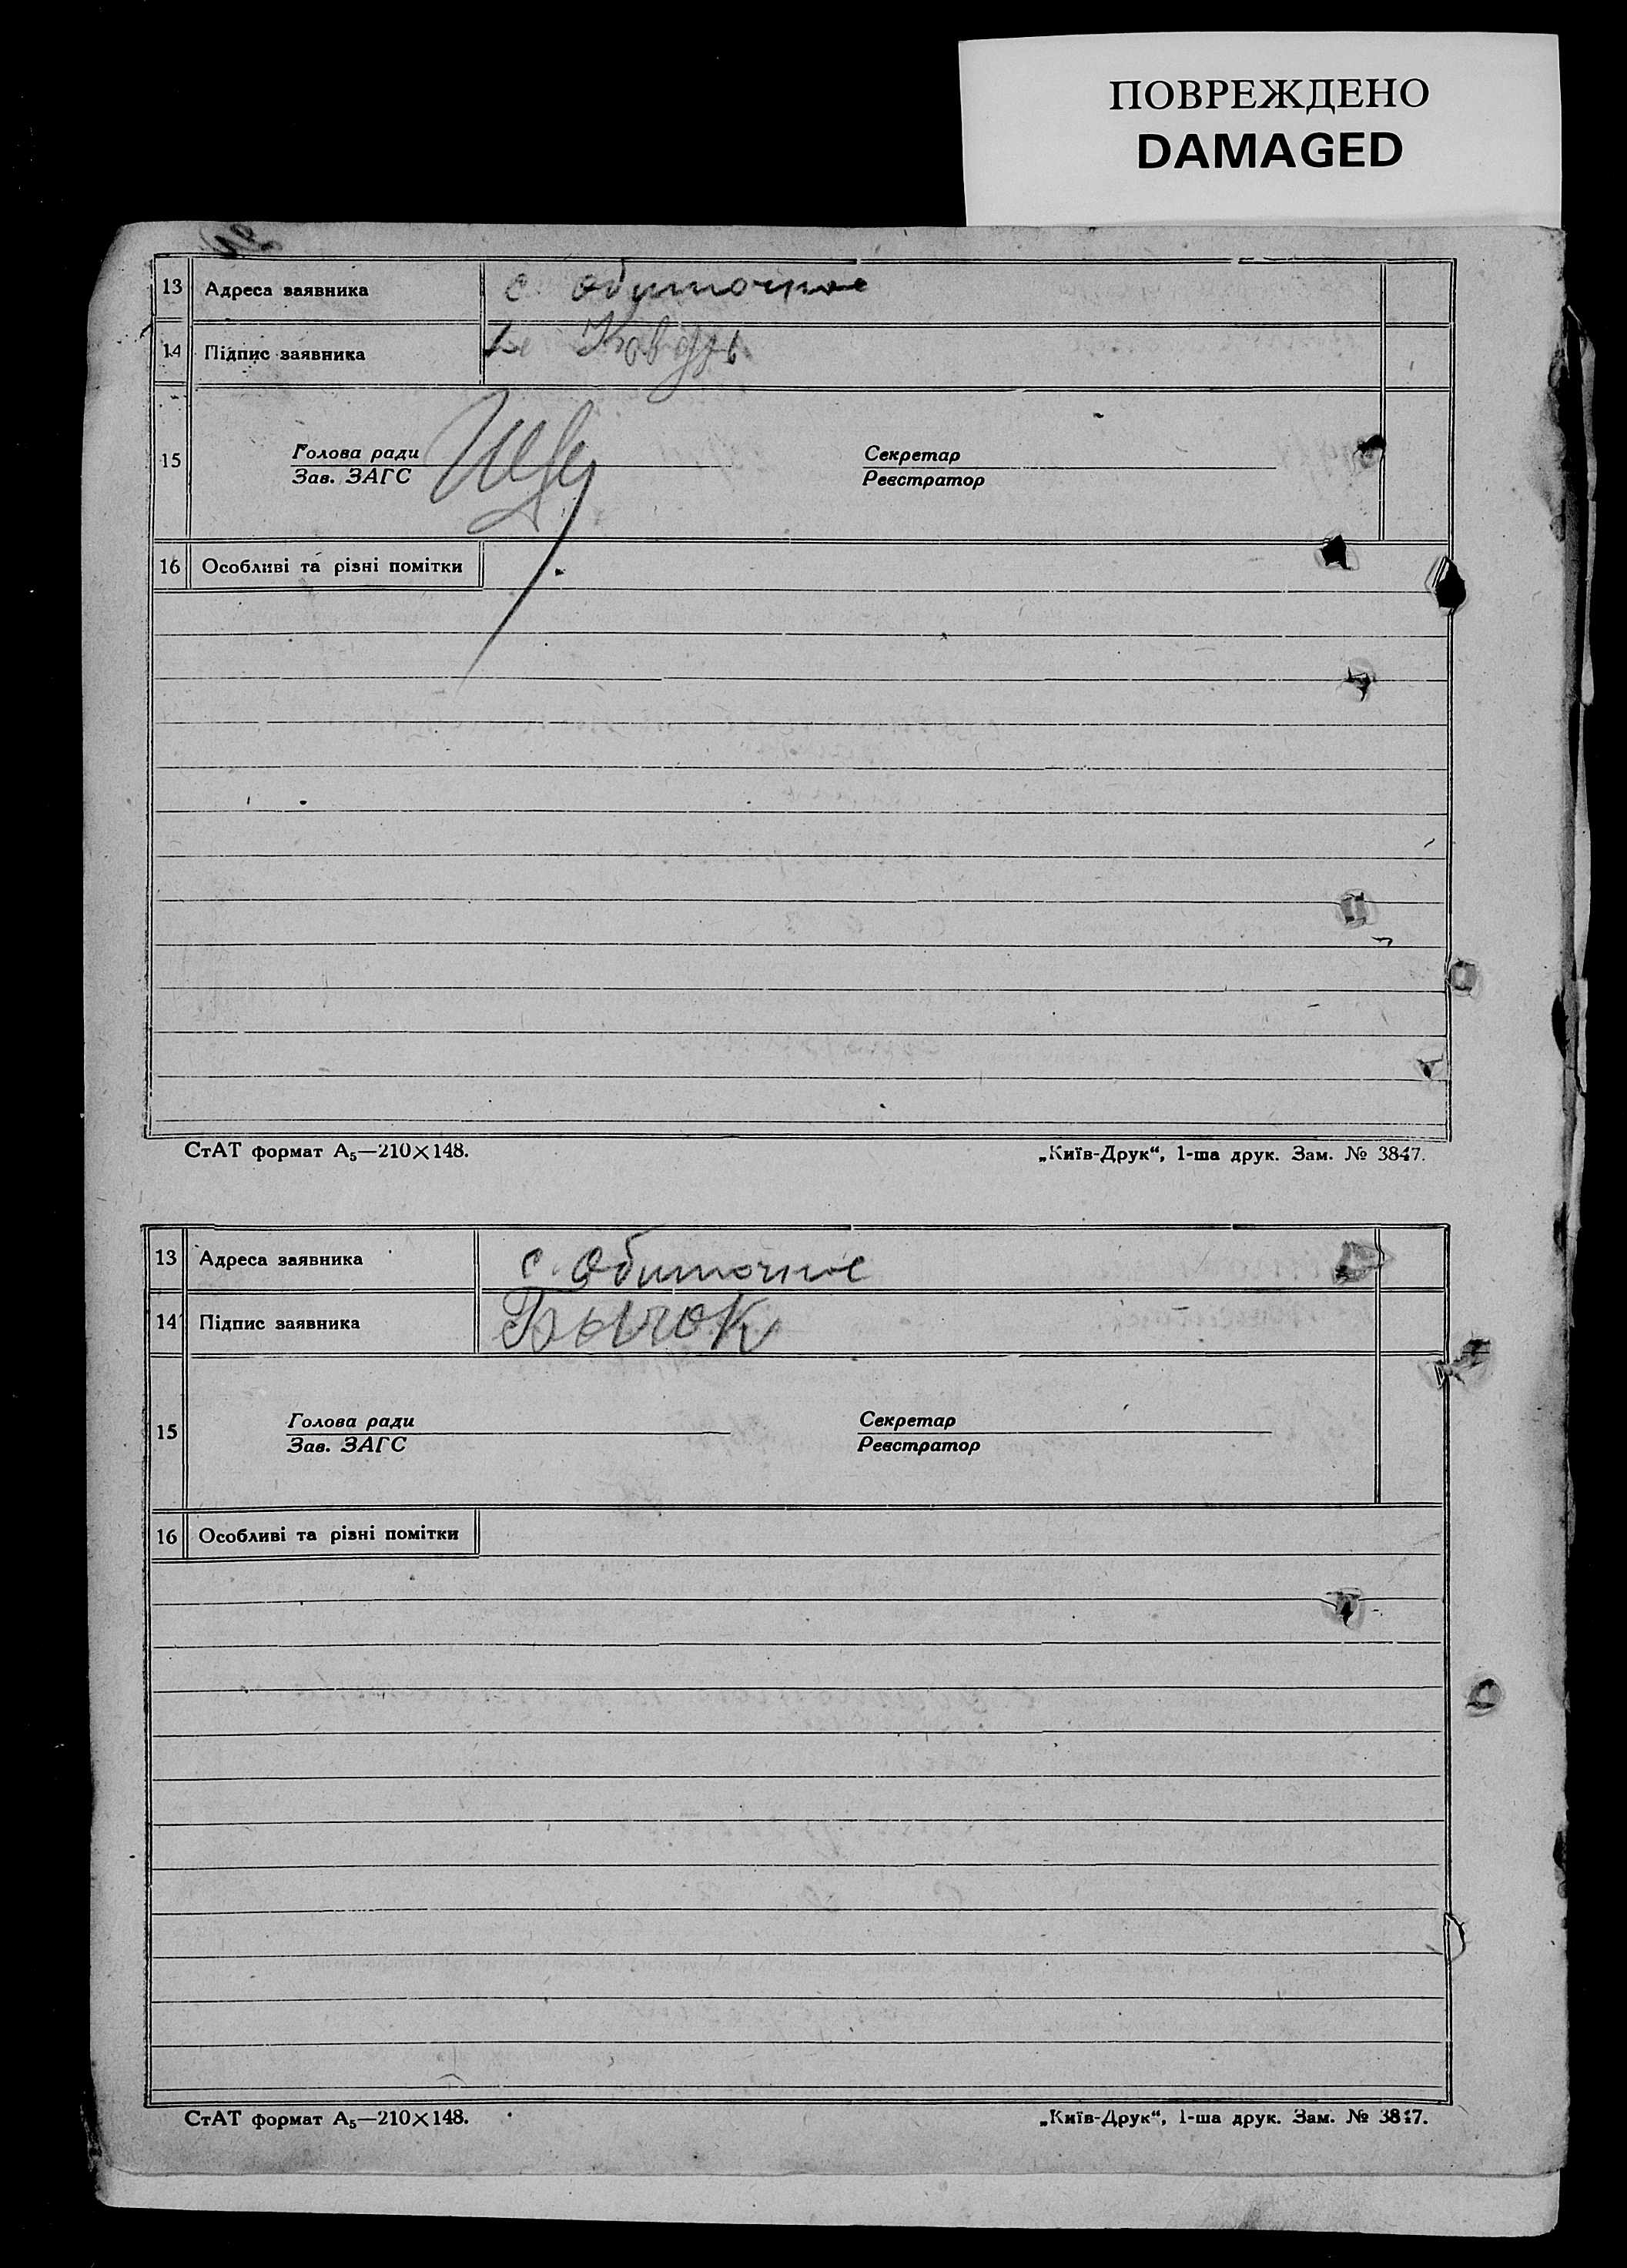 ПОВРЕЖДЕНО
DAMAGED
13 Адреса заявника с. Обиточное
14 Підпис заявника
15 Голова ради Секретар
Зав. ЗАГС Реєстратор
16 Особливі та різні помітки
СтАТ формат А₅—210×148. „Київ-Друк“, 1-ша друк. Зам. № 3847.
13 Адреса заявника с. Обиточное
14 Підпис заявника Бычок
15 Голова ради Секретар
Зав. ЗАГС Реєстратор
16 Особливі та різні помітки
СтАТ формат А₅—210×148. „Київ-Друк“, 1-ша друк. Зам. № 3847.